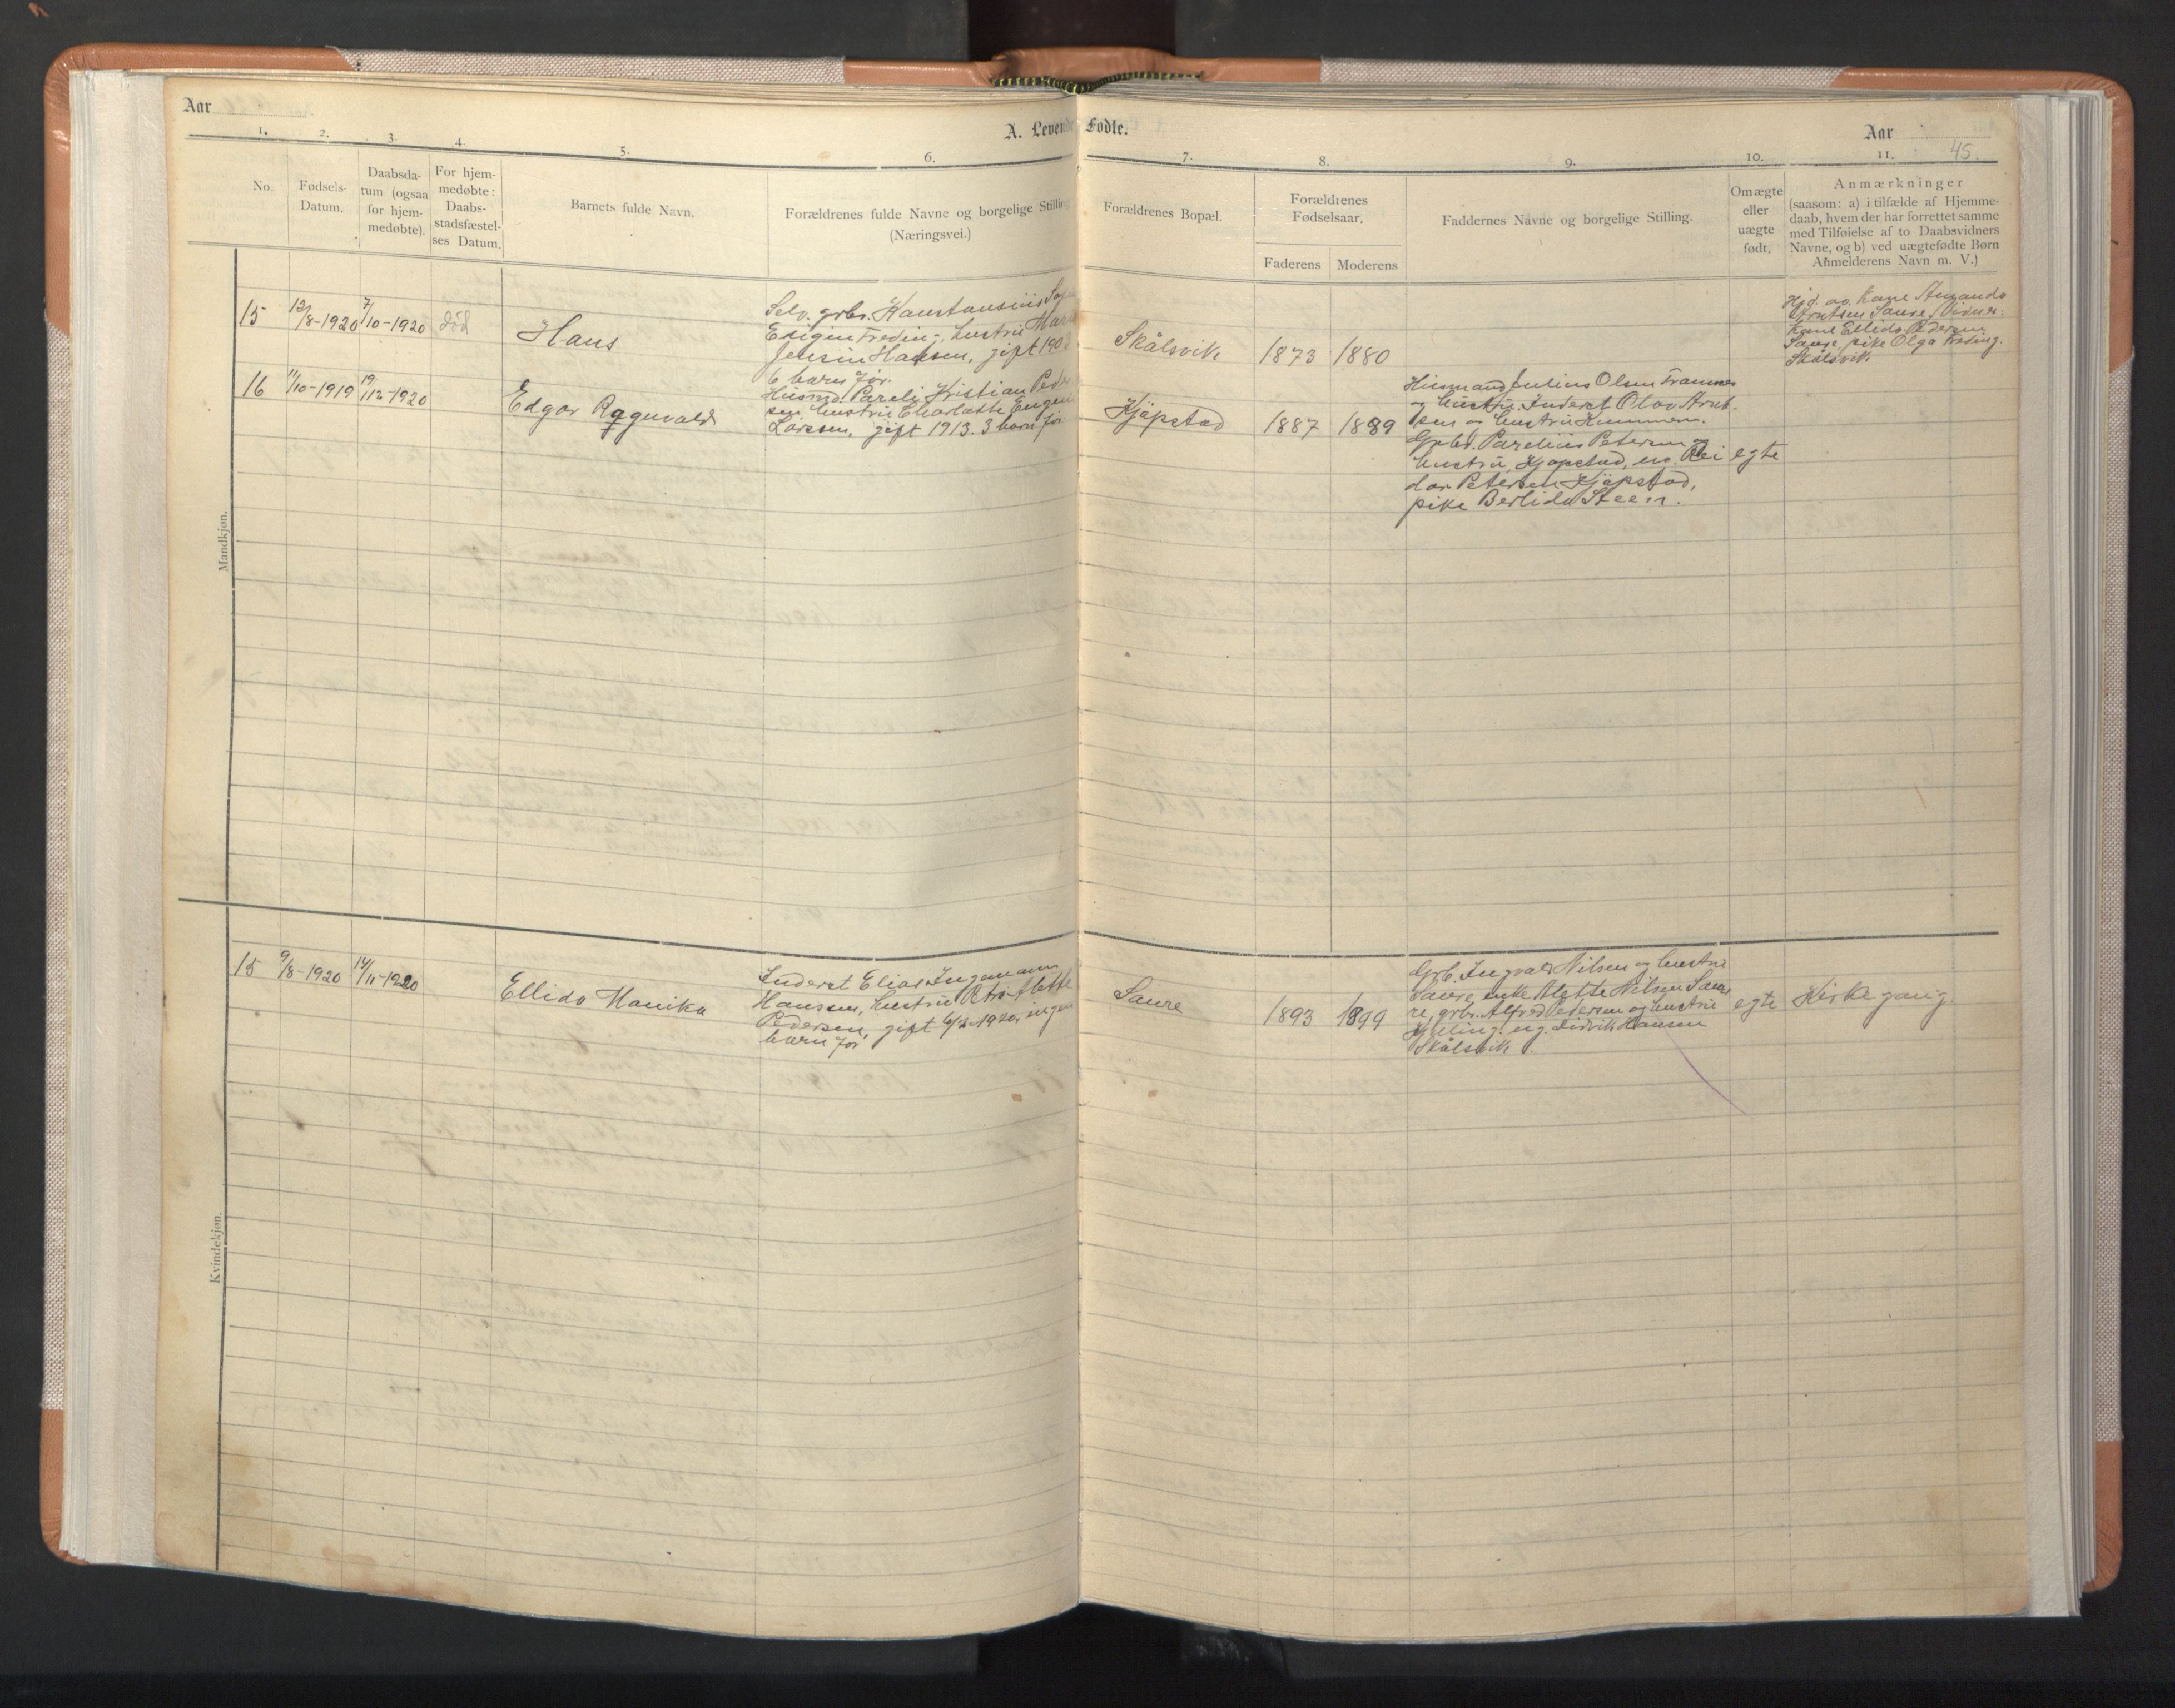 Aar
A. Levende Fødte.
Aar
45.
1. 2. 3. 4. 5. 6. 7. 8. 9. 10. 11.
No.
Fødsels-
Datum.
Daabsda-
tum (ogsaa
for hjem-
medøbte).
For hjem-
medøbte:
Daabs-
stadsfæstel-
ses Datum.
Barnets fulde Navn.
Forældrenes fulde Navne og borgelige Stilling
(Næringsvei.)
Forældrenes Bopæl.
Forældrenes
Fødselsaar.
Faderens
Moderens
Faddernes Navne og borgelige Stilling.
Om ægte
eller
uægte
født.
Anmærkninger
(saasom: a) i tilfælde af Hjemme-
daab, hvem der har forrettet samme
med Tilføielse af to Daabsvidners
Navne, og b) ved uægtefødte Børn
Anmelderens Navn m. V.)
Mandkjøn.
15
12/8-1920
7/10-1920
død
Hans
Selv. grbr. Konstansius
Edigin Freding, hustru
Jensin Hansen, gift 190
6 barn før.
Skålsvik
1873
1880
Hjd. av kone
Arntsen Saure, Vidner:
kone Ellida Pedersen
Saure, pike Olga Freding
Skålsvik
16
11/10-1919
19/12-1920
Edgar Ragnvald
Husmd. Pareli Kristian Peder
sen hustru Charlotte Eugen
Larsen, gift 1913. 3 barn før
Kjøpstad
1887
1889
Husmand Julius Olsen Framnes
og hustru, Inderst Olav Arnt-
sen og hustru
Grbr. Parelius Petersen og
hustru, Kjøpstad, ug. Rei
dar Petersen Kjøpstad,
pike Berlida Steen.
egte
Kvindekjøn.
15
9/8-1920
14/11-1920
Ellida Monika
Inderst Elias Ingemann
Hanssen, hustru Alette
Pedersen, gift 6/2-1920, ingen
barn før
Saure
1893
1899
Grb. Ingvald Nilsen og hustru
Saure, enke Alette Nilsen Sau
re, grbr. Alfred Pedersen og hustru
ug. Didrik Hansen
Skålsvik.
egte
Kirkegang.